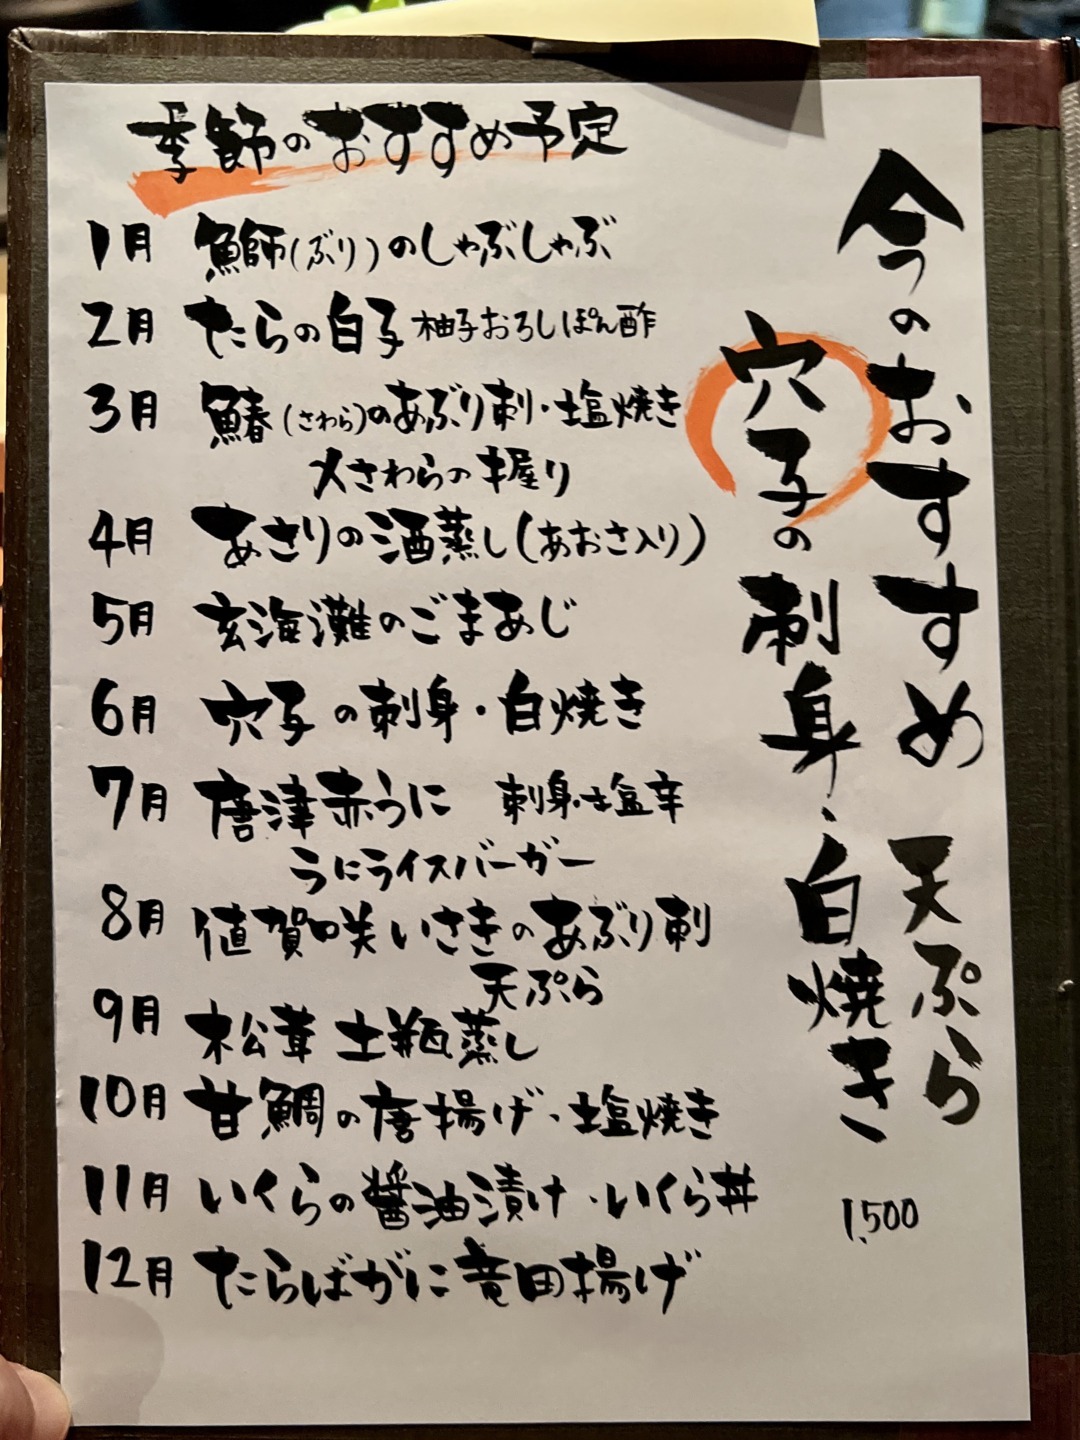 季節のおすすめ予定
1月 鰤(ぶり)のしゃぶしゃぶ
2月 たらの白子 柚子おろしぽん酢
3月 鰆(さわら)のあぶり刺・塩焼き
さわらの握り
4月 あさりの酒蒸し(あおさ入り)
5月 玄海灘のごまあじ
6月 穴子の刺身・白焼き
7月 唐津赤うに 刺身・塩辛
うにライスバーガー
8月 値賀咲いさきのあぶり刺
天ぷら
9月 松茸 土瓶蒸し
10月 甘鯛の唐揚げ・塩焼き
11月 いくらの醤油漬け・いくら丼
12月 たらばがに竜田揚げ
今のおすすめ
穴子の刺身、白焼き
天ぷら
1,500